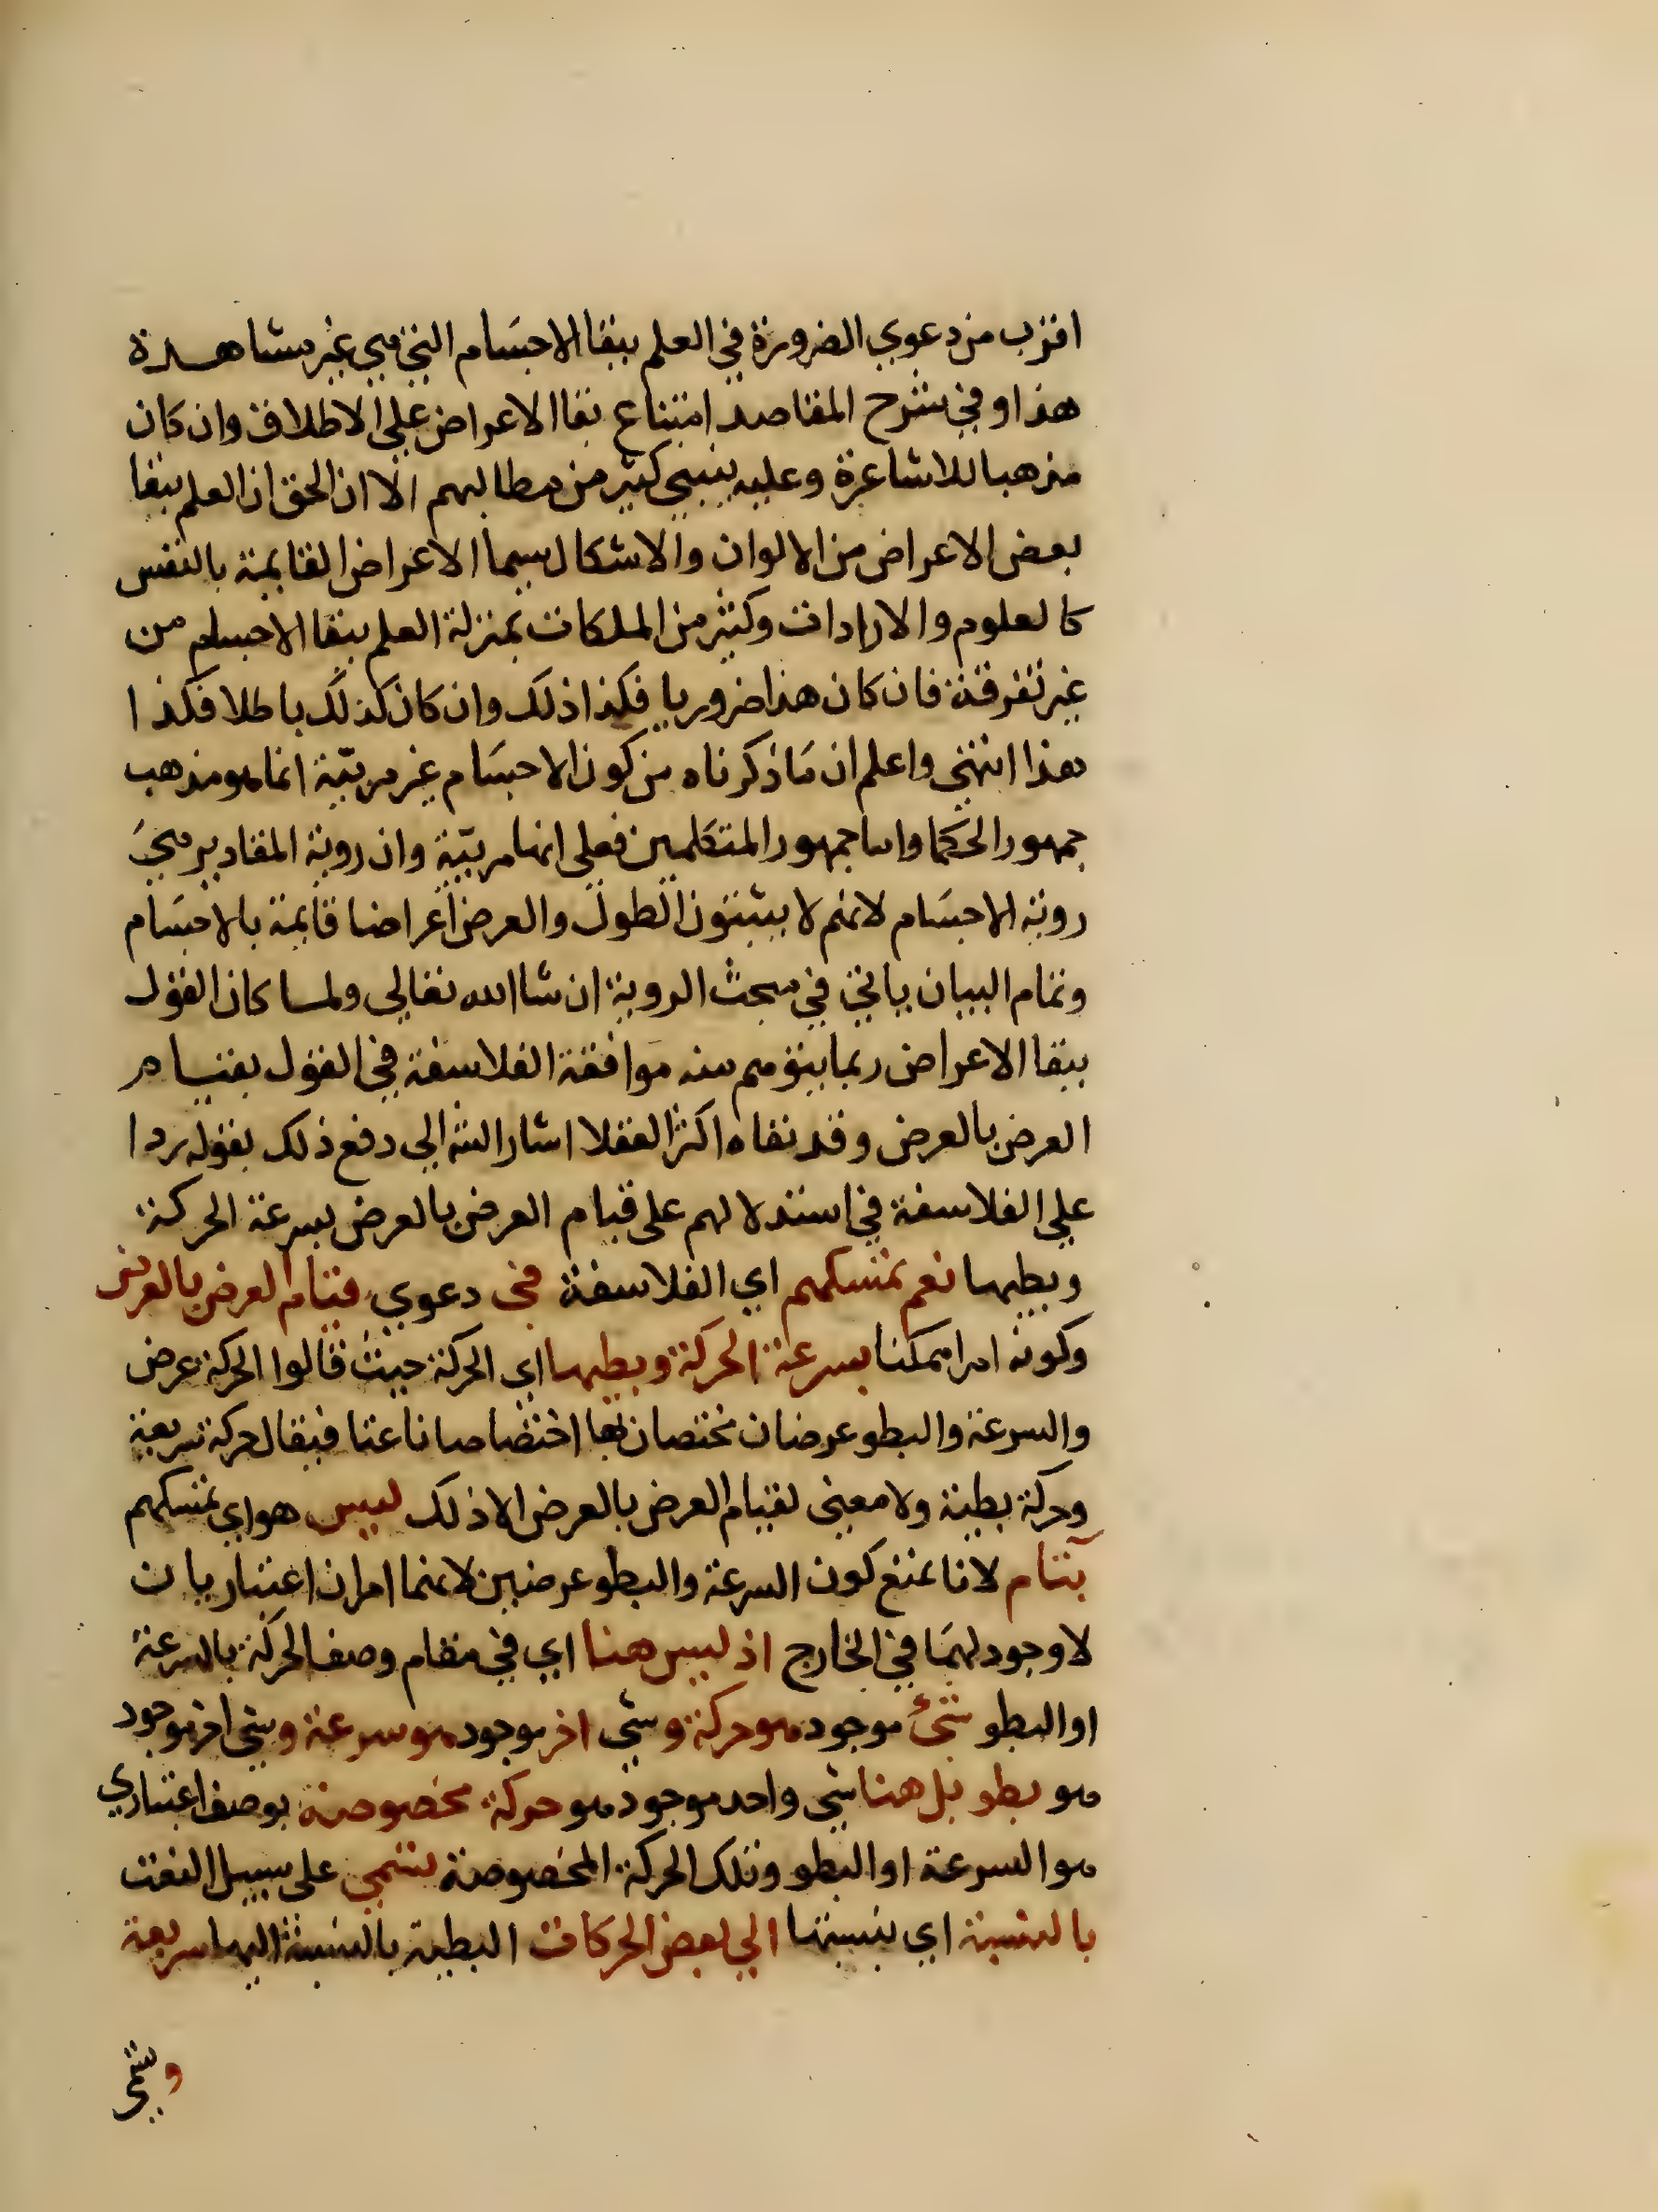 اقرب من دعوي الضرورة في العلم ببقا الاجسام التي هي غير مشاهدة
هذا وفي شرح المقاصد امتناع بقا الاعراض علي الاطلاق وان كان
مذهبا للاشاعرة وعليه يبتني كثير من مطالبهم الا ان الحق ان العلم ببقا
بعض الاعراض من الالوان والاشكال سيما الاعراض القايمة بالنفس
كالعلوم والارادات وكثير من الملكات بمنزلة العلم ببقا الاجسام من
غير تفرقة فان كان هذا ضروريا فكذا ذلك وان كان كذلك باطلا فكذا
هذا انتهي واعلم ان ما ذكرناه من كون الاجسام غير مريية انما هو مذهب
جمهور الحكما واما جمهور المتكلمين فعلي انها مريية وان روية المقادير هي
روية الاجسام لانهم لا يثبتون الطول والعرض اعراضا قايمة بالاجسام
وتمام البيان ياتي في مبحث الروية ان شا الله تعالي ولما كان القول
ببقا الاعراض ربما يتوهم منه موافقة الفلاسفة في القول بقيام
العرض بالعرض وقد نفاه اكثر العقلا اشار الش الي دفع ذلك بقوله ردا
علي الفلاسفة في استدلالهم على قيام العرض بالعرض بسرعة الحركة
وبطيها نعم تمسكهم اي الفلاسفة في دعوي قيام العرض بالعرض
وكونه امرا ممكنا بسرعة الحركة وبطيها اي الحركة حيث قالوا الحركة عرض
والسرعة والبطو عرضان مختصان بها اختصاصا ناعتا فيقال حركة سريعة
وحركة بطية ولا معني لقيام العرض بالعرض الا ذلك ليس هو اي تمسكهم
بتام لانا نمنع كون السرعة والبطو عرضين لانهما امران اعتباريان
لا وجود لهما في الخارج اذ ليس هنا اي في مقام وصف الحركة بالسرعة
او البطو شئ موجود هو حركة وشي اخر موجود هو سرعة وشي اخر موجود
هو بطو بل هنا شي واحد موجود هو حركة مخصوصة بوصف اعتباري
هو السرعة او البطو وتلك الحركة المخصوصة تسمي على سبيل النعت
بالنسبة اي بنسبتها الي بعض الحركات البطية بالنسبة اليها سريعة
وتسمي